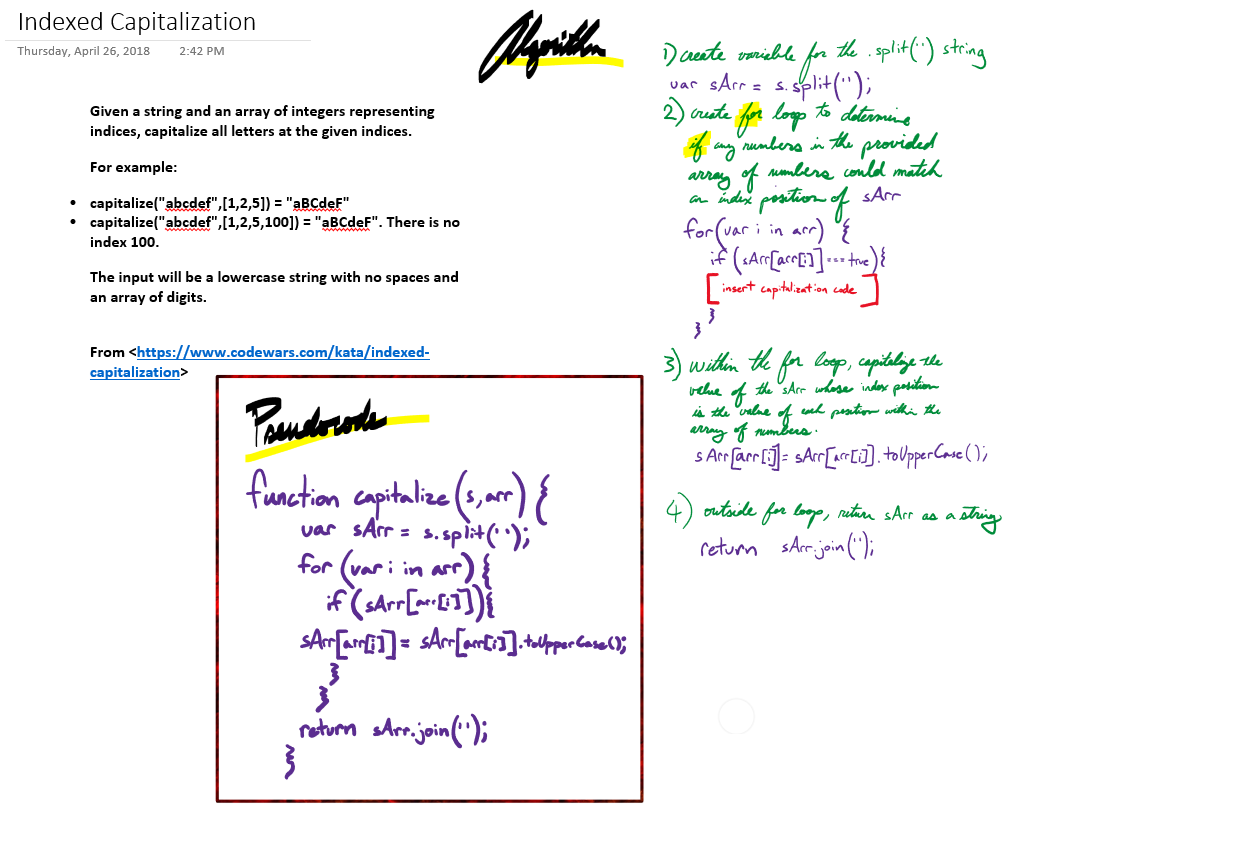 Indexed Capitalization
Thursday, April 26, 2018 2:42 PM
Given a string and an array of integers representing
indices, capitalize all letters at the given indices.
For example:
• capitalize("abcdef",[1,2,5]) = "aBCdeF"
• capitalize("abcdef",[1,2,5,100]) = "aBCdeF". There is no
index 100.
The input will be a lowercase string with no spaces and
an array of digits.
From <https://www.codewars.com/kata/indexed-
capitalization>
Pseudocode
function capitalize (s, arr) {
var sArr = s.split('');
for (var i in arr) {
if (sArr[arr[i]]){
sArr[arr[i]] = sArr[arr[i]].toUpperCase();
}
}
return sArr.join('');
}
Algorithm
1) create variable for the .split('') string
var sArr = s.split('');
2) create for loop to determine
if any numbers in the provided
array of numbers could match
an index position of sArr
for(var i in arr) {
if (sArr[arr[i]] === true){
[insert capitalization code]
}
}
3) within the for loop, capitalize the
value of the sArr whose index position
is the value of each position within the
array of numbers.
sArr[arr[i]] = sArr[arr[i]].toUpperCase();
4) outside for loop, return sArr as a string
return sArr.join('');